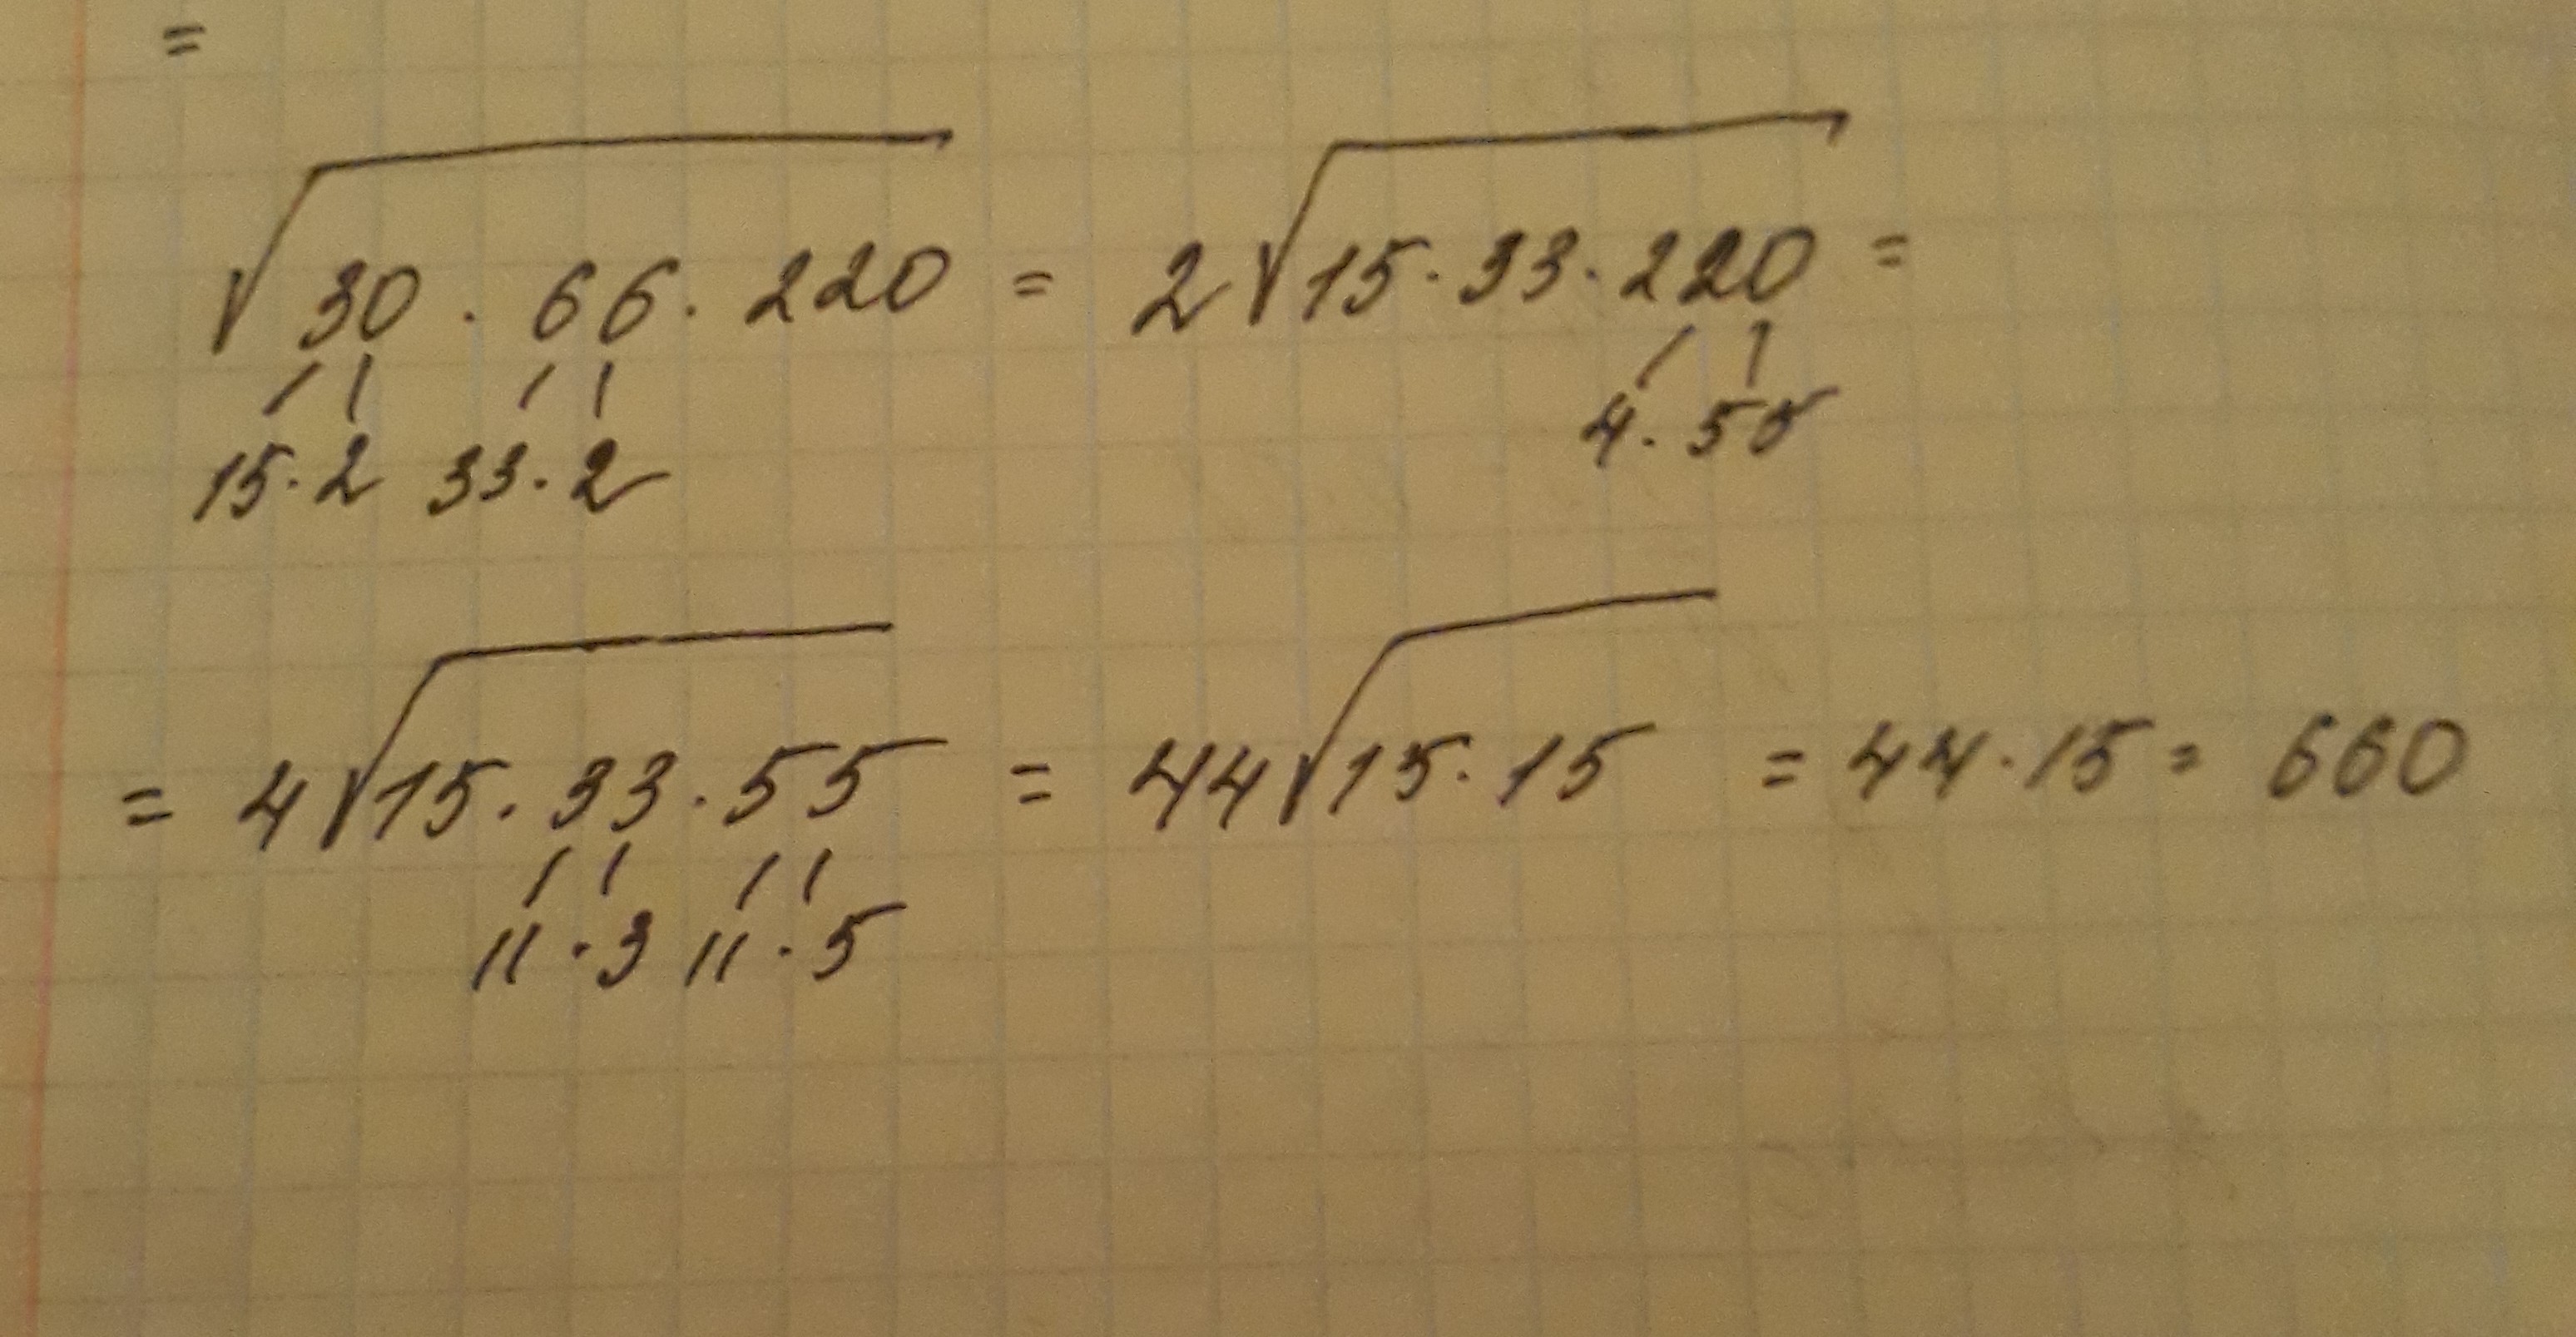 =
√30 · 66 · 220 = 2√15 · 33 · 220 =
4 · 55
15 · 2 33 · 2
= 4√15 · 33 · 55 = 44√15 · 15 = 44 · 15 = 660
11 · 3 11 · 5